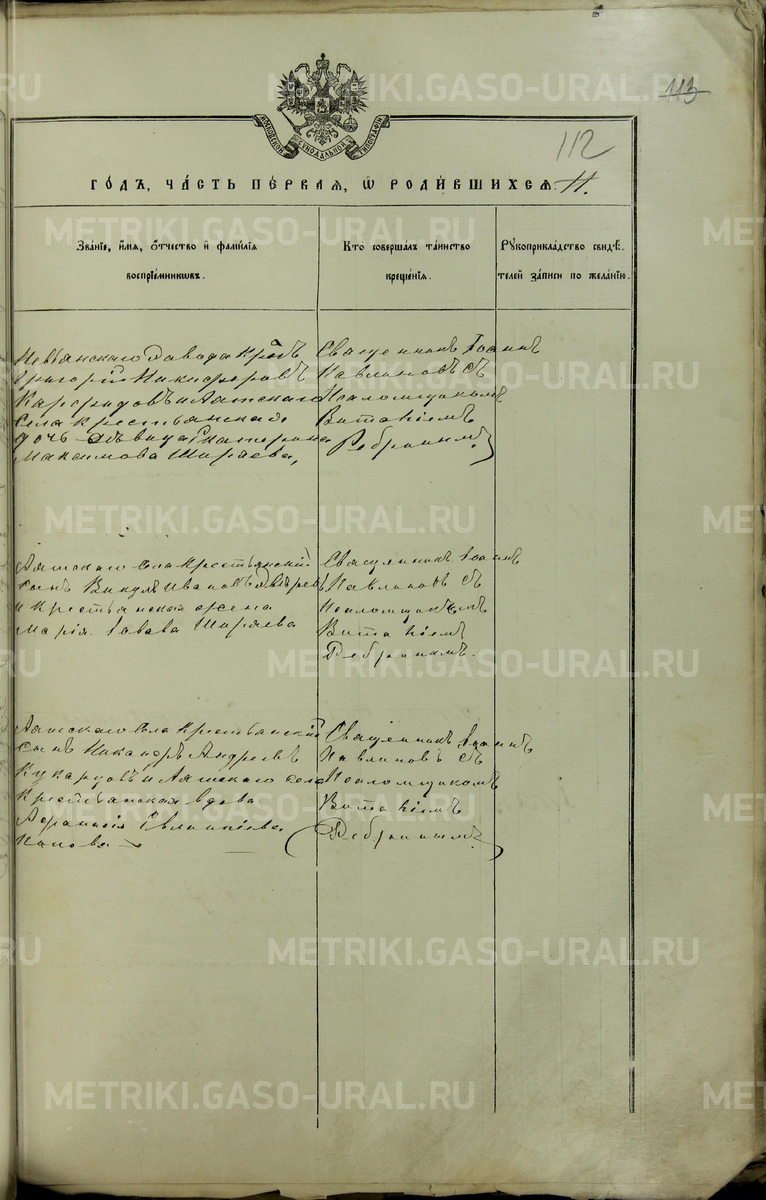 113
112
МОСКОВСКОЙ СѴНОДАЛЬНОЙ ТИПОГРАФІИ
ГО́ДЪ, ЧА́СТЬ ПЕ́РВАЯ, Ѡ РОДИ́ВШИХСЯ. 11.
Зва́нїе, и́мя, о́тчество и҆ фами́лїя
воспрїе́мникѡвъ.
Кто̀ соверша́лъ та́инство
креще́нїя.
Рꙋкоприкла́дство свидѣ́-
телей за́писи по жела́нїю.
Невьянскаго Завода Крест.
Григорій Никифоровъ
и Аятскаго
села крестьянская
дочь девица Екатерина
Максимова Ширяева,
Священникъ Іоаннъ
Павлиновъ съ
Псаломщикомъ
Виталіемъ
Ребринымъ
Аятскаго села крестьянскій
сынъ Викулъ Ивановъ
и крестьянская жена
Марія Савва Ширяева
Священникъ Іоаннъ
Павлиновъ съ
Псаломщикомъ
Виталіемъ
Ребринымъ.
Аятскаго села крестьянскій
сынъ Никаноръ Андреевъ
и Аятскаго села
крестьянская вдова
Афанасія
Попова
Священникъ Іоаннъ
Павлиновъ съ
Псаломщикомъ
Виталіемъ
Ребринымъ
METRIKI.GASO-URAL.RU